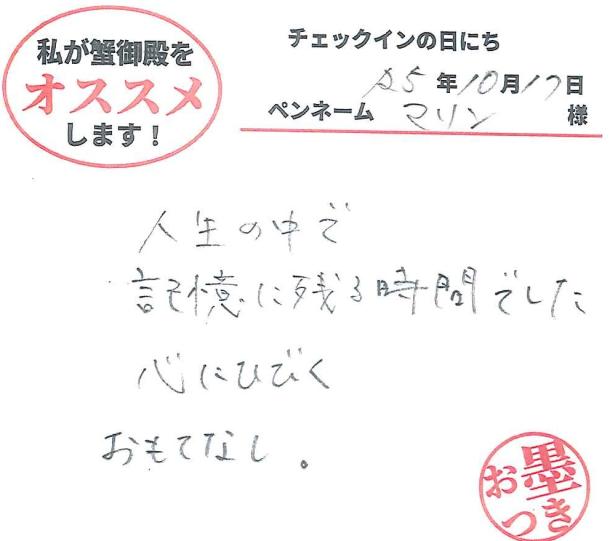 私が蟹御殿を
オススメ
します！
チェックインの日にち
25年10月17日
ペンネーム マリン 様
人生の中で
記憶に残る時間でした
心にひびく
おもてなし。
お墨
つき